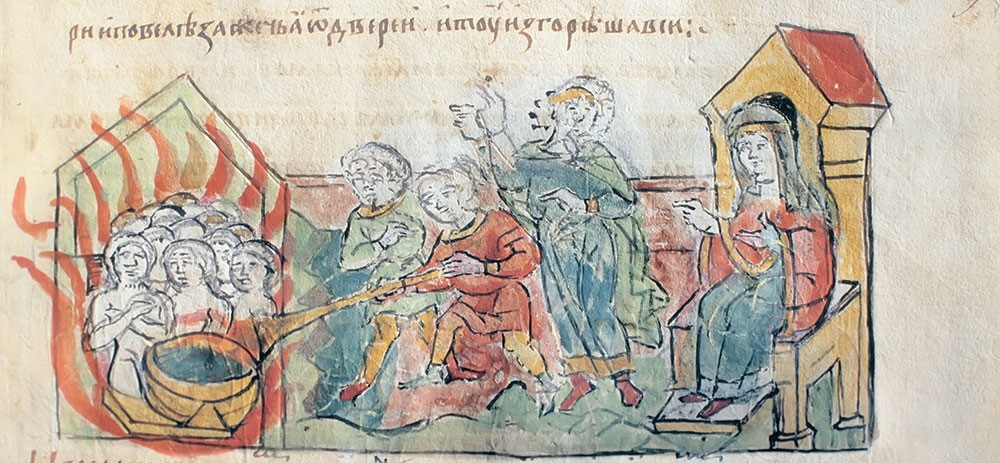 ри и повелѣ зажечьꙗ ѿ двереи . и тоу изгорѣша вси :·